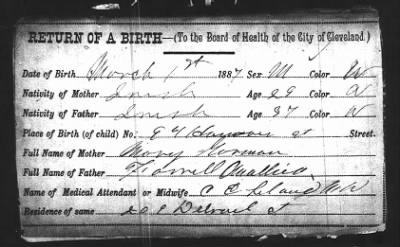 RETURN OF A BIRTH—(To the Board of Health of the City of Cleveland.)
Date of Birth March 1st 1887 Sex M Color W
Nativity of Mother Irish Age 29 Color W
Nativity of Father Irish Age 37 Color W
Place of Birth (of child) No. 94 st Street.
Full Name of Mother Mary Gorman
Full Name of Father Farrell
Name of Medical Attendant or Midwife C C
Residence of same 208 Detroit st